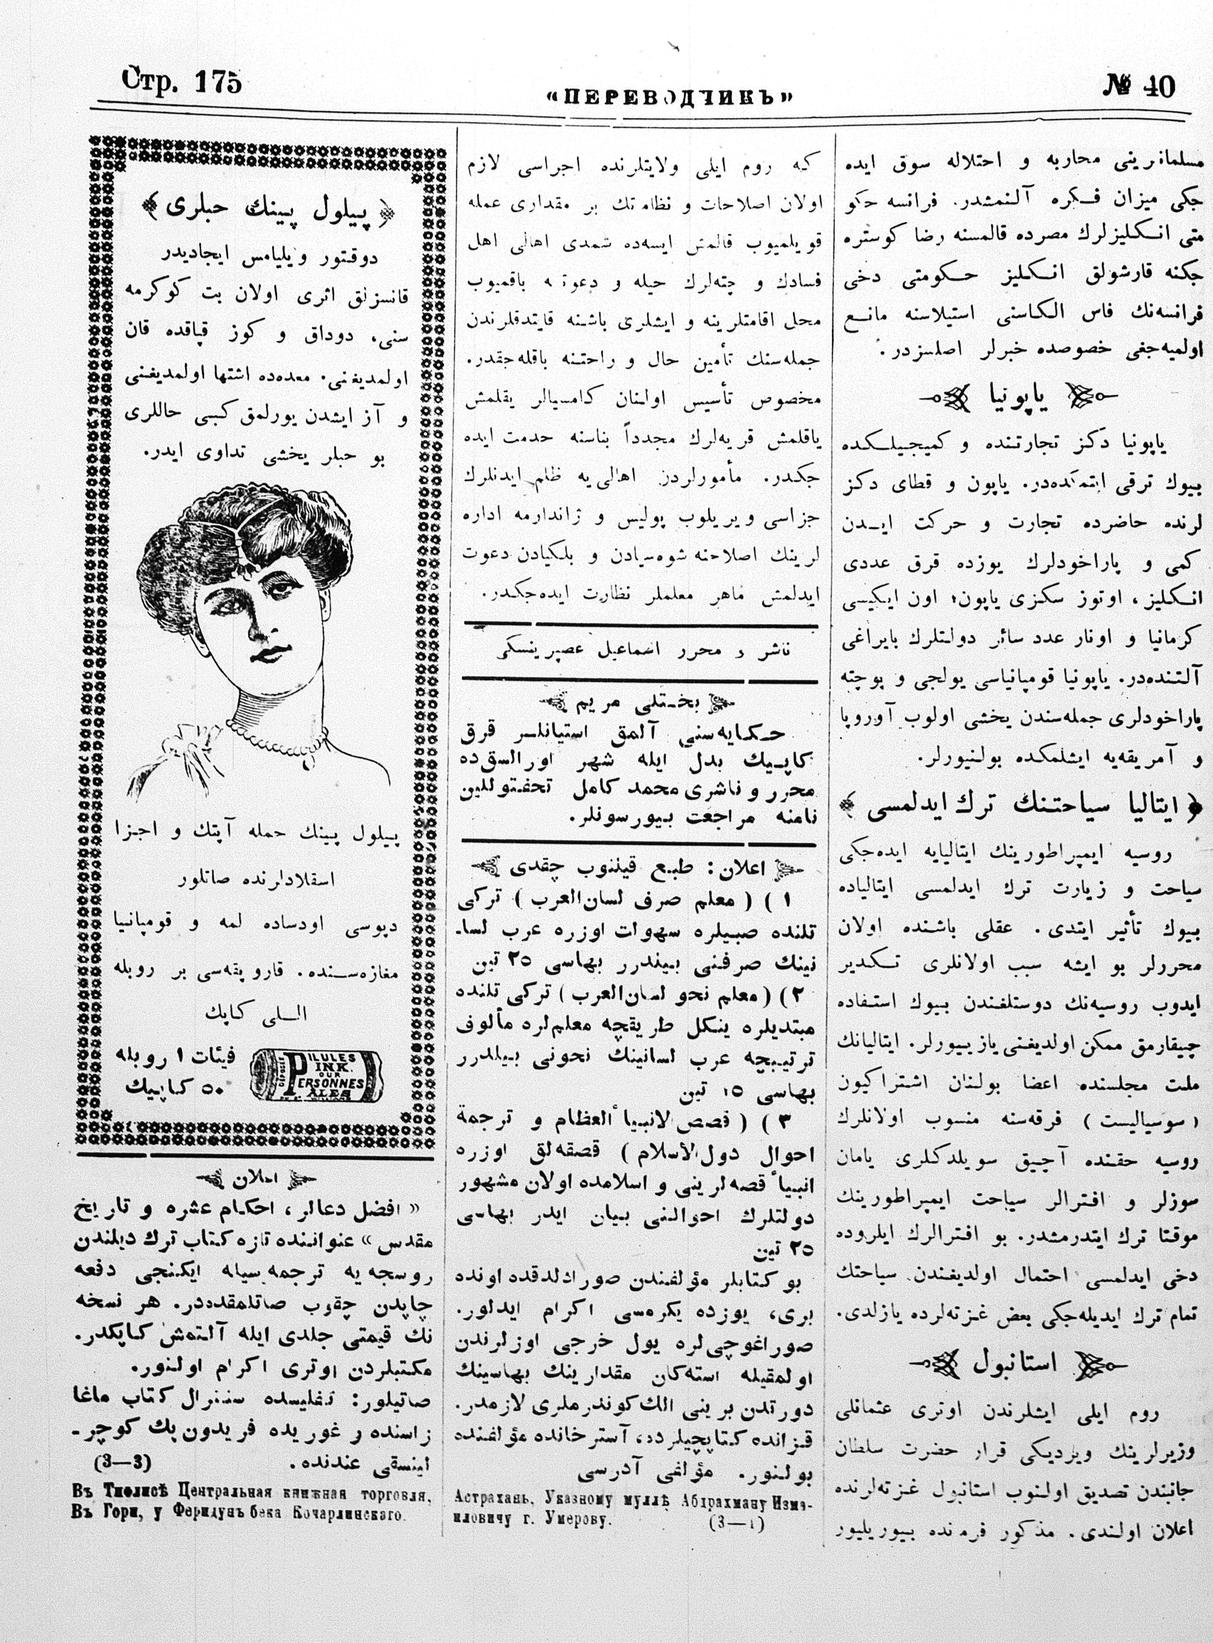 Стр. 175
«ПЕРЕВОДЧИКЪ»
№ 40
مسلمانرینی محاربه و احتلاله سوق ایده
جکی میزان فکره آلنمشدر. فرانسه حکو
متی انکلیزلرك مصرده قالمسنه رضا کوستره
جکنه قارشولق انکلیز حکومتی دخی
فرانسه‌نك فاس الکاسنی استیلاسنه مانع
اولمیه‌جغی خصوصده خبرلر اصلسزدر.
یاپونیا
یاپونیا دکز تجارتنده و کمیجیلکده
بیوك ترقی ایتمکده‌در. یاپون و قطای دکز
لرنده حاضرده تجارت و حرکت ایدن
کمی و پاراخودلرك یوزده قرق عددی
انکلیز، اوتوز سکزی یاپون؛ اون ایکیسی
کرمانیا و اونار عدد سائر دولتلرك بایراغی
آلتنده‌در. یاپونیا قومپانیاسی یولجی و پوچته
پاراخودلری جمله‌سندن یخشی اولوب آوروپا
و آمریقه‌یه ایشلمکده بولنیورلر.
ایتالیا سیاحتنك ترك ایدلمسی
روسیه ایمپراطورینك ایتالیایه ایده‌جکی
سیاحت و زیارت ترك ایدلمسی ایتالیاده
بیوك تأثیر ایتدی. عقلی باشنده اولان
محررلر بو ایشه سبب اولانلری تکدیر
ایدوب روسیه‌نك دوستلغندن بیوك استفاده
چیقارمق ممکن اولدیغنی یازییورلر. ایتالیانك
ملت مجلسنده اعضا بولنان اشتراکیون
(سوسیالیست) فرقه‌سنه منسوب اولانلرك
روسیه حقنده آجیق سویلدکلری یامان
سوزلر و افترالر سیاحت ایمپراطورینك
موقتا ترك ایتدرمشدر. بو افترالرك ایلروده
دخی ایدلمسی احتمال اولدیغندن سیاحتك
تمام ترك ایدیله‌جکی بعض غزته‌لرده یازلدی.
استانبول
روم ایلی ایشلرندن اوتری عثمانلی
وزیرلرینك ویردیکی قرار حضرت سلطان
جانبندن تصدیق اولنوب استانبول غزته‌لرنده
اعلان اولندی. مذکور فرمنده بیوریلیور
که روم ایلی ولایتلرنده اجراسی لازم
اولان اصلاحات و نظامتك بر مقداری عمله
قویلمیوب قالمش ایسه‌ده شمدی اهالی اهل
فسادك و چته‌لرك حیله و دعوتنه باقمیوب
محل اقامتلرینه و ایشلری باشنه قایتدقلرندن
جمله‌سنك تأمین حال و راحتنه باقله‌جقدر.
مخصوص تأسیس اولنان کامسیالر یقلمش
یاقلمش قریه‌لرك مجدداً بناسنه خدمت ایده
جکدر. مأمورلردن اهالی‌یه ظلم ایدنلرك
جزاسی ویریلوب پولیس و ژاندارمه اداره
لرینك اصلاحنه شوه‌سیادن و بلکیادن دعوت
ایدلمش ماهر معلملر نظارت ایده‌جکدر.
ناشر و محرر اسماعیل غصپرینسکی
بختلی مریم
حکایه‌سنی آلمق استیانلر قرق
کاپیك بدل ایله شهر اورالسق‌ده
محرر و ناشری محمد کامل تحفتوللین
نامنه مراجعت بیورسونلر.
اعلان: طبع قیلنوب چقدی
١) (معلم صرف لسان‌العرب) ترکی
تلنده صبیلره سهولت اوزره عرب لسا-
نینك صرفنی بیلدرر بهاسی ٢٥ تین
٢) (معلم نحو لسان‌العرب) ترکی تلنده
مبتدیلره ینکل طریقچه معلم‌لره مألوف
ترتیبچه عرب لسانینك نحونی بیلدرر
بهاسی ١٥ تین
٣) (قصص‌الانبیأ العظام و ترجمة
احوال دول‌الاسلام) قصقه‌لق اوزره
انبیأ قصه‌لرینی و اسلامده اولان مشهور
دولتلرك احوالنی بیان ایدر بهاسی
٢٥ تین
بو کتابلر مؤلفندن صورادلدقده اونده
بری، یوزده یکرمسی اکرام ایدلور.
صوراغوچی‌لره یول خرجی اوزلرندن
اولمقیله استه‌کان مقدارینك بهاسینك
دورتدن برینی الك کوندرملری لازمدر.
قزانده کتاپچیلرده، آسترخانده مؤلفنده
بولنور. مؤلفی آدرسی
Астрахань, Указному муллѣ Абдрахману Изма-
иловичу г. Умерову. (3—1)
پیلول پینك حبلری
دوقتور ویلیامس ایجادیدر
قانسزلق اثری اولان بت کوکرمه
سنی، دوداق و کوز قپاقده قان
اولمدیغنی. معده‌ده اشتها اولمدیغنی
و آز ایشدن یورلمق کبی حاللری
بو حبلر یخشی تداوی ایدر.
پیلول پینك جمله آپتك و اجزا
اسقلادلرنده صاتلور
دپوسی اودساده لمه و قومپانیا
مغازه‌سنده. قاروپقه‌سی بر روبله
اللی کاپك
فیئات ١ روبله
٥٠ کاپیك
PILULES
PINK
OUR
PERSONNES
PALES
اعلان
«افضل دعالر، احکام عشره و تاریخ
مقدس» عنواننده تازه کتاب ترك دیلندن
روسجه‌یه ترجمه‌سیله ایکنجی دفعه
چاپدن چقوب صاتلمقده‌در. هر نسخه
نك قیمتی جلدی ایله آلتمش کاپکدر.
مکتبلردن اوتری اکرام اولنور.
صاتیلور: تفلیسده سنترال کتاب ماغا
زاسنده و غوریده فریدون‌بك کوچر-
لینسقی عندنده. (3—3)
Въ Тифлисѣ Центральная книжная торговля,
Въ Гори, у Феридунъ бека Кочарлинскаго.